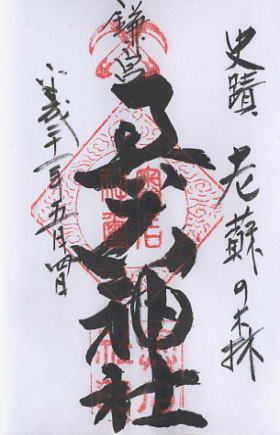 史蹟 老蘇の森
鎌宮
奥石神社
平成二十一年五月四日